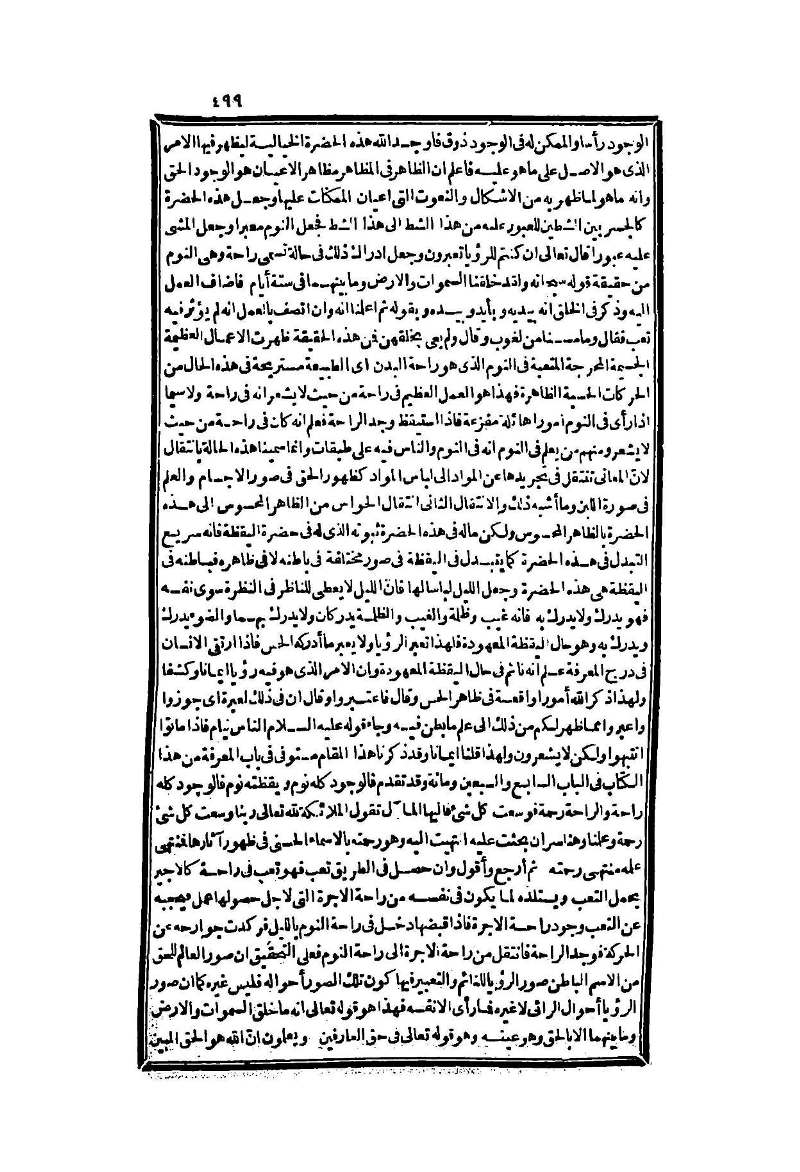 ٤٩٩
الوجود رأسا والممكن له في الوجود ذوق فاوجد الله هذه الحضرة الخيالية ليظهر فيها الامر
الذي هو الاصل على ما هو عليه فاعلم ان الظاهر في المظاهر مظاهر الاعيان هو الوجود الحق
وانه ما هو لما ظهر به من الاشكال والنعوت التي اعيان الممكنات عليها وجعل هذه الحضرة
كالجسر بين الشطين للعبور عليه من هذا الشط الى هذا الشط فجعل النوم معبرا وجعل المشى
عليه عبورا قال تعالى ان كنتم للرؤيا تعبرون وجعل ادراك ذلك في حالة تسمى راحة وهى النوم
من حقيقة قوله سبحانه ولقد خلقنا السموات والارض وما بينهما في ستة أيام فاضاف العمل
اليه وذكر في الخلق انه بيديه وبأيد وبيده وبقوله ثم اعلمنا انه وان اتصف بالعمل انه لم يؤثر فيه
تعب فقال وما مسنا من لغوب وقال ولم يعى بخلقهن فمن هذه الحقيقة ظهرت الاعمال العظيمة
الجسيمة المحرجة المتعبة في النوم الذي هو راحة البدن اى الطبيعة مستريحة في هذه الحال من
الحركات الحسية الظاهرة فهذا هو العمل العظيم في راحة من حيث لا يشعر انه في راحة ولاسيما
اذا رأى في النوم أمورا هائلة مفزعة فاذا استيقظ وجد الراحة فعلم انه كان في راحة من حيث
لا يشعر ومنهم من يعلم في النوم انه في النوم والناس فيه على طبقات وانما سمينا هذه الحالة بانتقال
لان المعاني تنتقل في تجريدها عن المواد الى لباس المواد كظهور الحق في صور الاجسام والعلم
في صورة اللبن وما أشبه ذلك والانتقال الثاني انتقال الحواس من الظاهر المحسوس الى هذه
الحضرة بالظاهر المحسوس ولكن ماله في هذه الحضرة ثبوته الذي له في حضرة اليقظة فانه سريع
التبدل في هذه الحضرة كما يتبدل في اليقظة في صور مختلفة في باطنه لا في ظاهره فباطنه في
اليقظة هي هذه الحضرة وجعل الليل لباسا لها فان الليل لا يعطى للناظر في النظرة سوى نفسه
فهو يدرك ولا يدرك به فانه غيب وظلمة والغيب والظلمة يدركان ولا يدرك بهما والضوء يدرك
ويدرك به وهو حال اليقظة المعهودة فلهذا تعبر الرؤيا ولا يعبر ما أدركه الحس فاذا ارتقى الانسان
في درج المعرفة علم انه نائم في حال اليقظة المعهودة وان الامر الذي هو فيه رؤيا ايمانا وكشفا
ولهذا ذكر الله أمورا واقعة في ظاهر الحس وقال فاعتبروا وقال ان في ذلك لعبرة اى جوزوا
واعبروا مما ظهر لكم من ذلك الى علم ما بطن فيه وجاء قوله عليه السلام الناس نيام فاذا ماتوا
انتبهوا ولكن لا يشعرون ولهذا قلنا ايمانا وقد ذكرنا هذا المقام مستوفى في باب المعرفة من هذا
الكتاب في الباب السابع والسبعين ومائة وقد تقدم فالوجود كله نوم ويقظته نوم فالوجود كله
راحة والراحة رحمة فوسعت كل شئ فاليها المآل تقول الملائكة لله تعالى ربنا وسعت كل شئ
رحمة وعلما وهنا سر ان بحثت عليه انتهيت اليه وهو رحمته بالاسماء الحسنى في ظهور آثارها فمنتهى
علمه منتهى رحمته ثم أرجع وأقول وان حصل في الطريق تعب فهو تعب في راحة كالاجير
يحمل التعب ويستلذه لما يكون في نفسه من راحة الاجرة التي لاجل حصولها عمل فيحجبه
عن التعب وجود راحة الاجرة فاذا قبضها دخل في راحة النوم بالليل فركدت جوارحه عن
الحركة فوجد الراحة فانتقل من راحة الاجرة الى راحة النوم فعلى التحقيق ان صور العالم للحق
من الاسم الباطن صور الرؤيا للنائم والتعبير فيها كون تلك الصور أحواله فليس غيره كما ان صور
الرؤيا أحوال الرائى لا غيره فما رأى الا نفسه فهذا هو قوله تعالى انه ما خلق السموات والارض
وما بينهما الا بالحق وهو عينه وهو قوله تعالى في حق العارفين ويعلمون ان الله هو الحق المبين